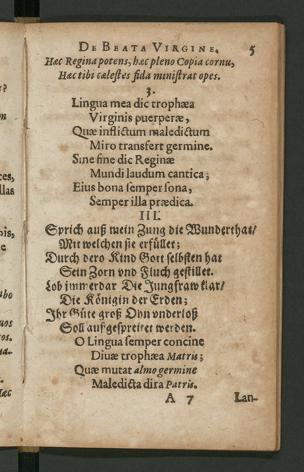 DE BEATA VIRGINE. 5
Hæc Regina potens, hæc pleno Copia cornu,
Hæc tibi cælestes fida ministrat opes.
3.
Lingua mea dic trophæa
Virginis puerperæ,
Quæ inflictum maledictum
Miro transfert germine.
Sine fine dic Reginæ
Mundi laudum cantica;
Eius bona semper sona,
Semper illa prædica.
III.
Sprich auß mein Zung die Wunderthat/
Mit welchen sie erfüllet;
Durch dero Kind Gott selbsten hat
Sein Zorn vnd Fluch gestillet.
Lob immerdar Die Jungfraw klar/
Die Königin der Erden;
Ihr Güte groß Ohn vnderloß
Soll außgespreitet werden.
O Lingua semper concine
Divæ trophæa Matris;
Quæ mutat almo germine
Maledicta dira Patris.
A 7 Lan-